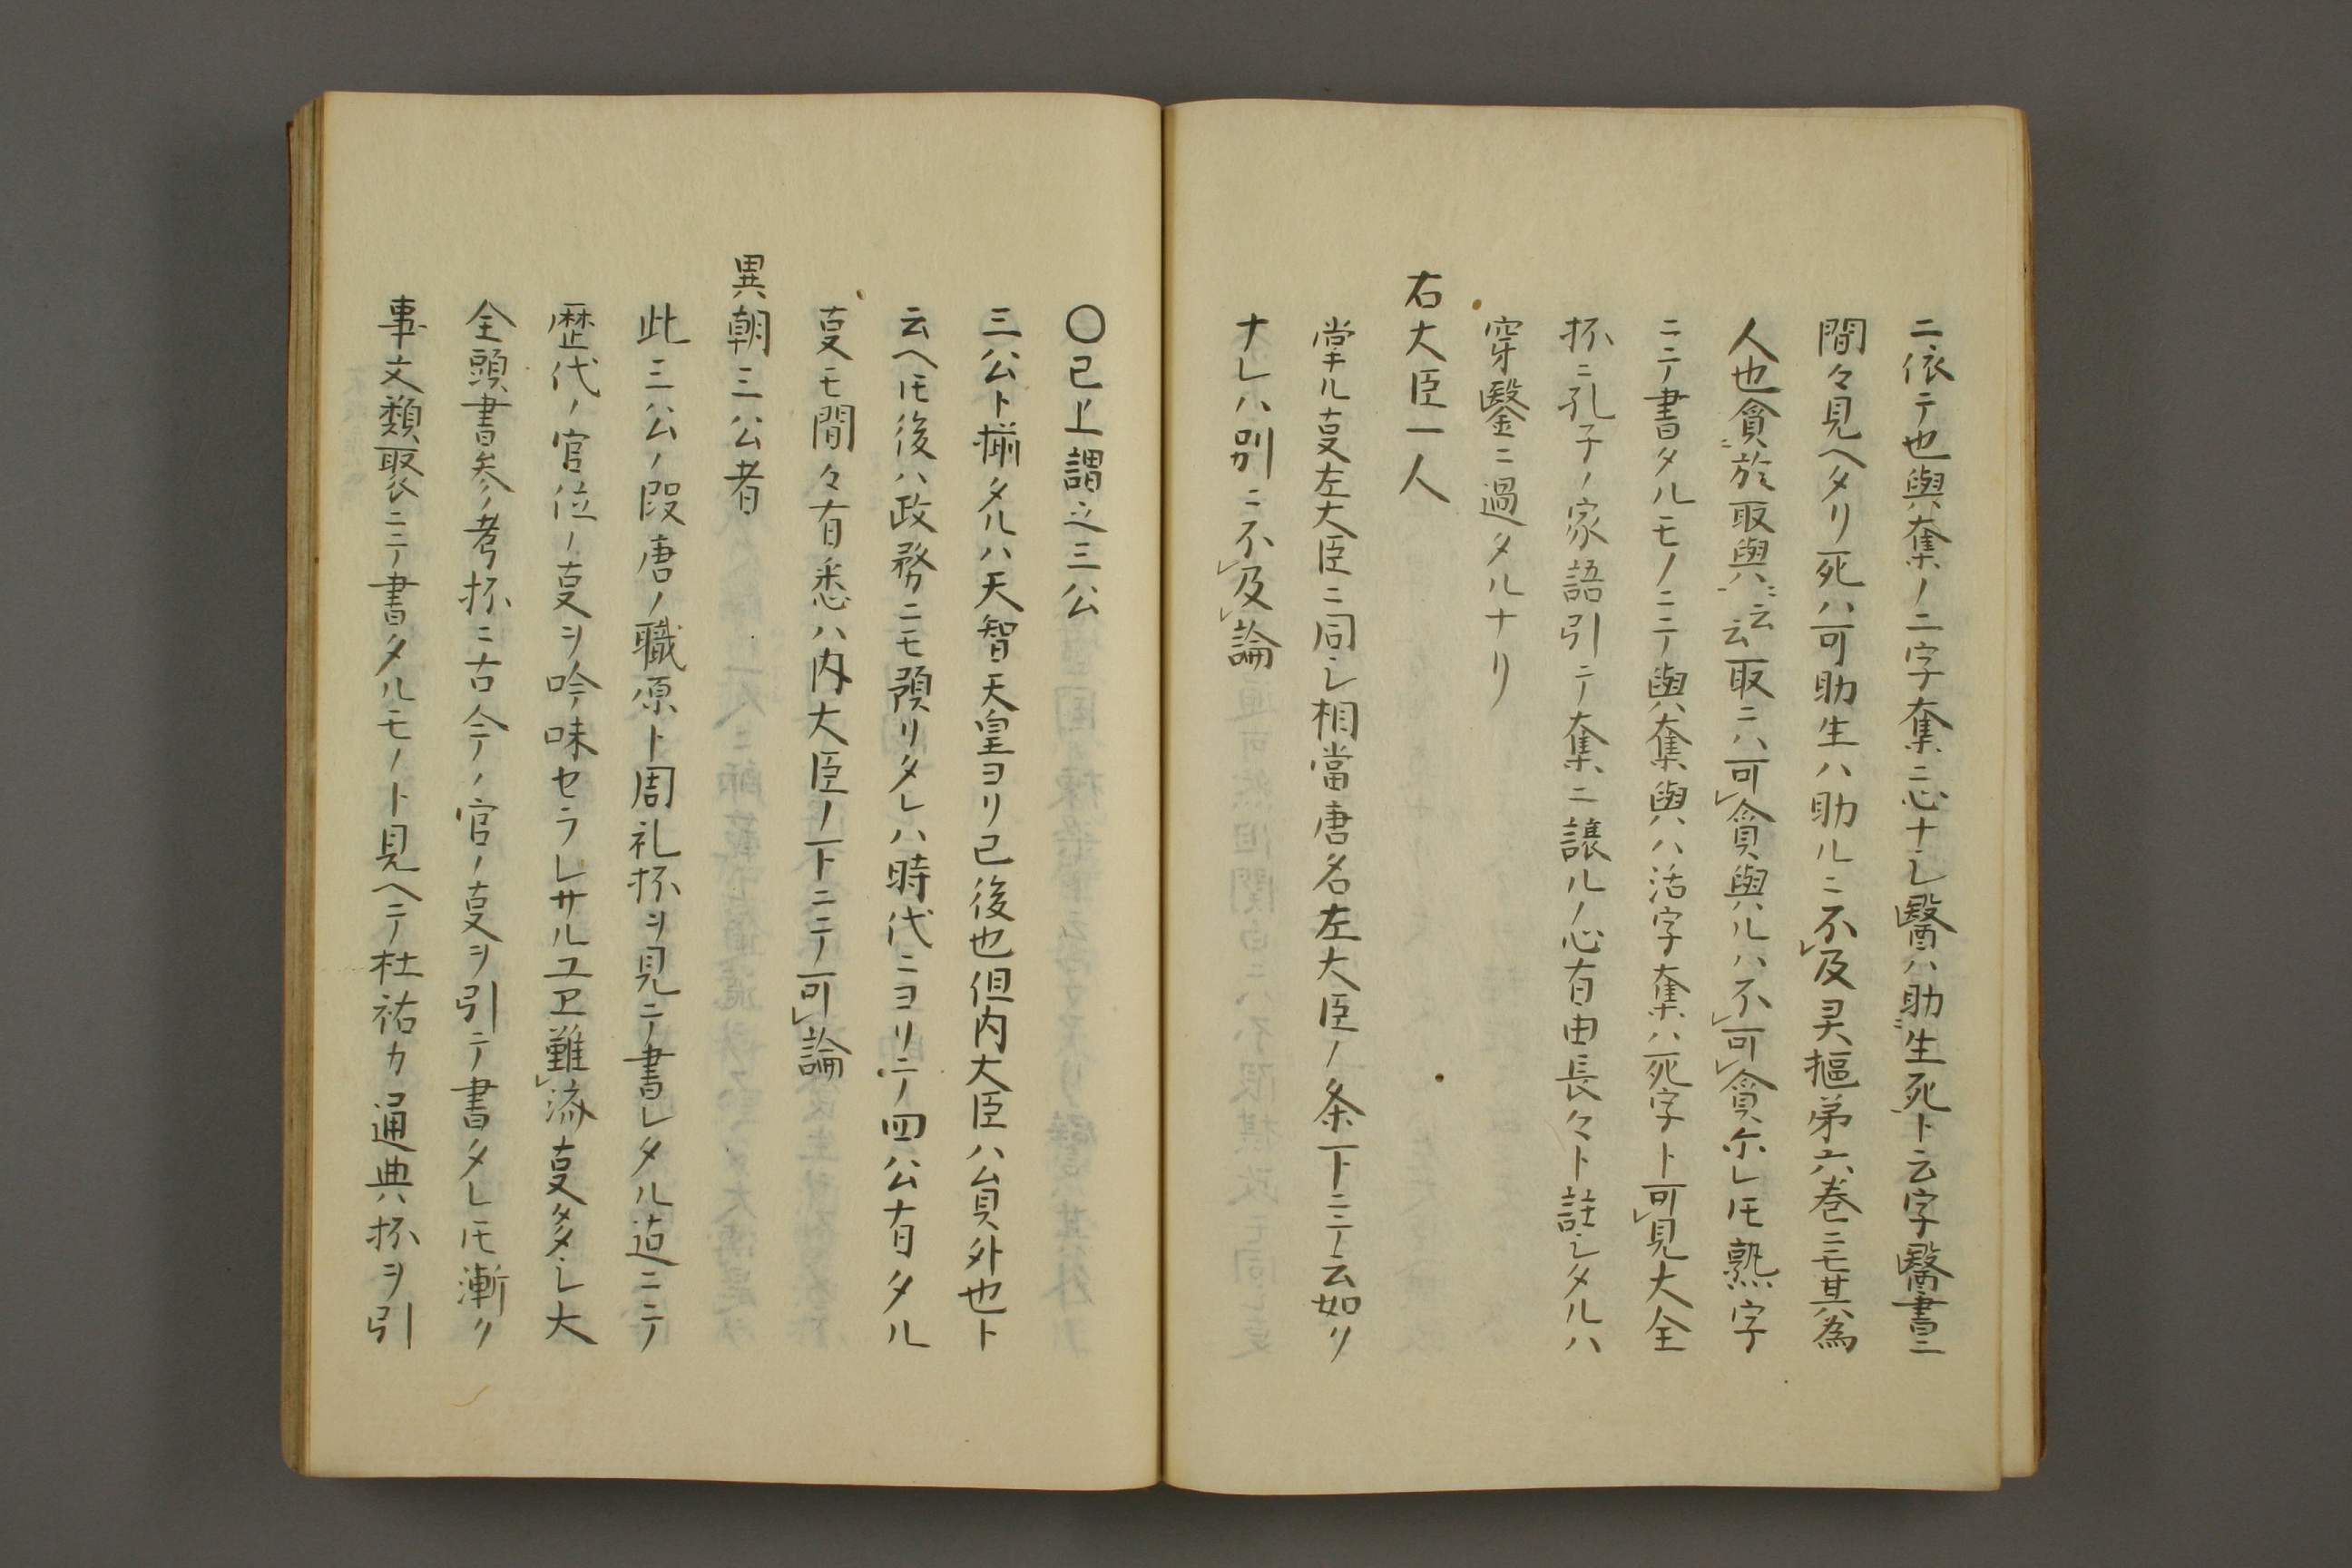 ニ依テ也與奪ノ二字奪ニ心ナシ醫ハ助生死ト云字醫書ニ
間々見ヘタリ死ハ可助生ハ助ルニ不レ及灵樞第六巻ニモ其為
人也貪於取與云云取ニハ可レ貪與ルハ不レ可レ貪尓レ𪜈熟字
ニテ書タルモノニテ與奪與ハ活字奪ハ死字ト可レ見大全
抔ニ孔子ノ家語引テ奪ニ譲ルノ心有由長々ト註シタルハ
穿鑿ニ過タルナリ
右大臣一人
掌ル叓左大臣ニ同シ相當唐名左大臣ノ条下ニテ云如リ
ナレハ別ニ不レ及レ論
〇已上謂之三公
三公ト揃タルハ天智天皇ヨリ已後也但内大臣ハ員外也ト
云ヘ𪜈後ハ政務ニモ預リタレハ時代ニヨリテ四公有タル
叓モ間々有悉ハ内大臣ノ下ニテ可レ論
異朝三公者
此三公ノ段唐ノ職原ト周礼抔ヲ見テ書レタル迠ニテ
歴代ノ官位ノ叓ヲ吟味セラレサルユヱ難レ済叓多シ大
全頭書参考抔ニ古今ノ官ノ叓ヲ引テ書タレ𪜈漸リ
事文類聚ニテ書タルモノト見ヘテ杜祐カ通典抔ヲ引